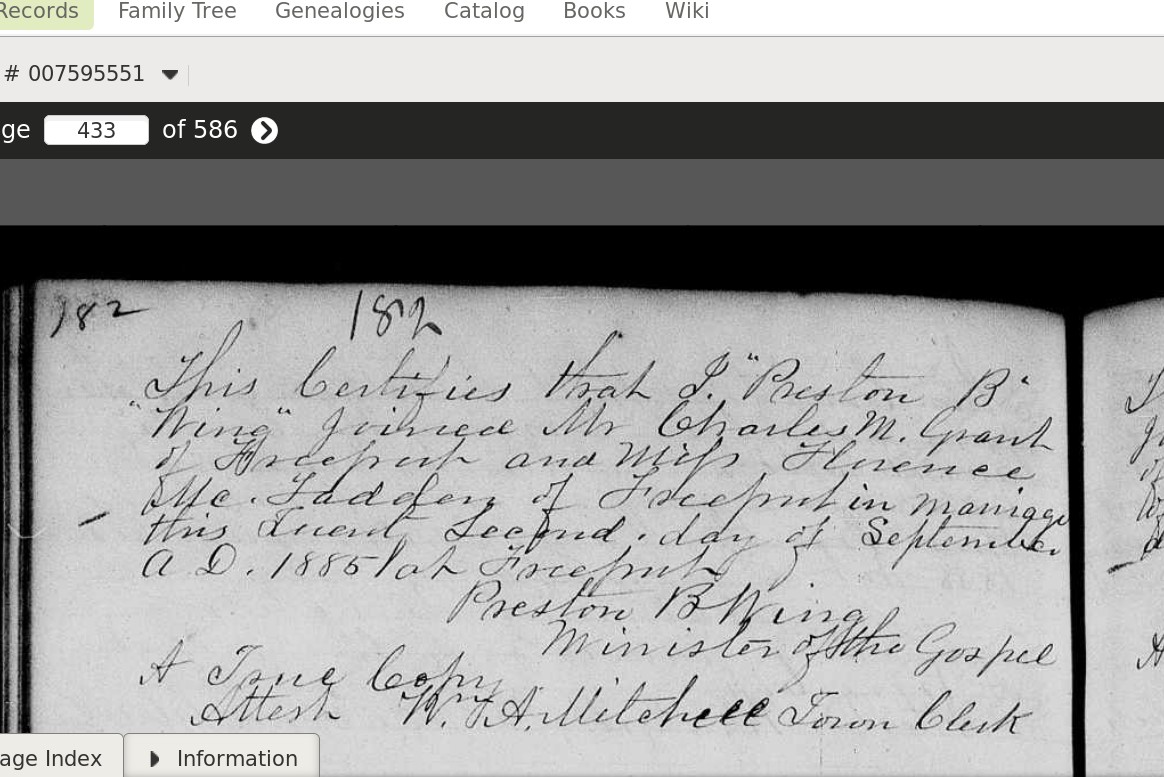 Records Family Tree Genealogies Catalog Books Wiki
# 007595551
ge 433 of 586
182 182
This Certifies that I. "Preston B"
"Wing" joined Mr Charles M. Grant
of Freeport and Miss Florence
Mc. Fadden of Freeport in marriage
this Twent Second. day of September
A D. 1885 at Freeport
Preston B Wing
Minister of the Gospel
A True Copy
Attest W. A. Mitchell Town Clerk
age Index Information